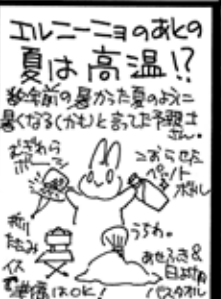 エルニーニョのあとの
夏は高温!?
数年前の暑かった夏のように
暑くなる(かも)と言ってた予報士
さん。
むぎわら
ボーシ
こおらせた
ペット
ボトル
うちわ。
折り
たたみ
イス
あせふき&
日よけ用
バスタオル
準備はOK!